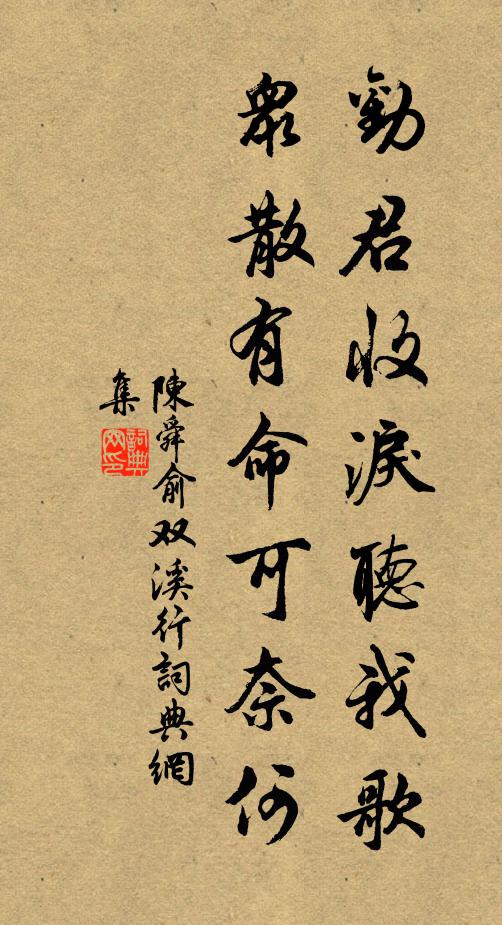 勸君收淚聽我歌
眾散有命可奈何
陳舜俞双溪行詞典網
集
詞典網印